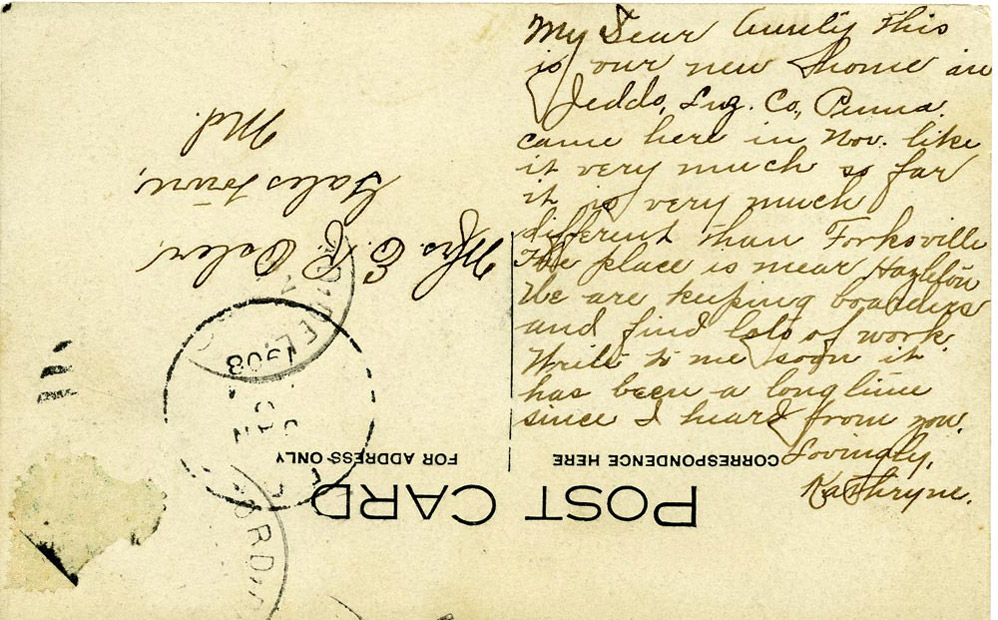 My Dear Aunty this
is our new home in
Jeddo, Luz. Co., Penna.
came here in Nov. like
it very much so far
it is very much
different than Forksville
The place is near Hazleton
We are keeping boarders
and find lots of work.
Write to me soon it
has been a long time
since I heard from you.
Lovingly,
Kathryne.
POST CARD
CORRESPONDENCE HERE
FOR ADDRESS ONLY
Mrs. E. P.
Galestown,
Md.
JAN
1908